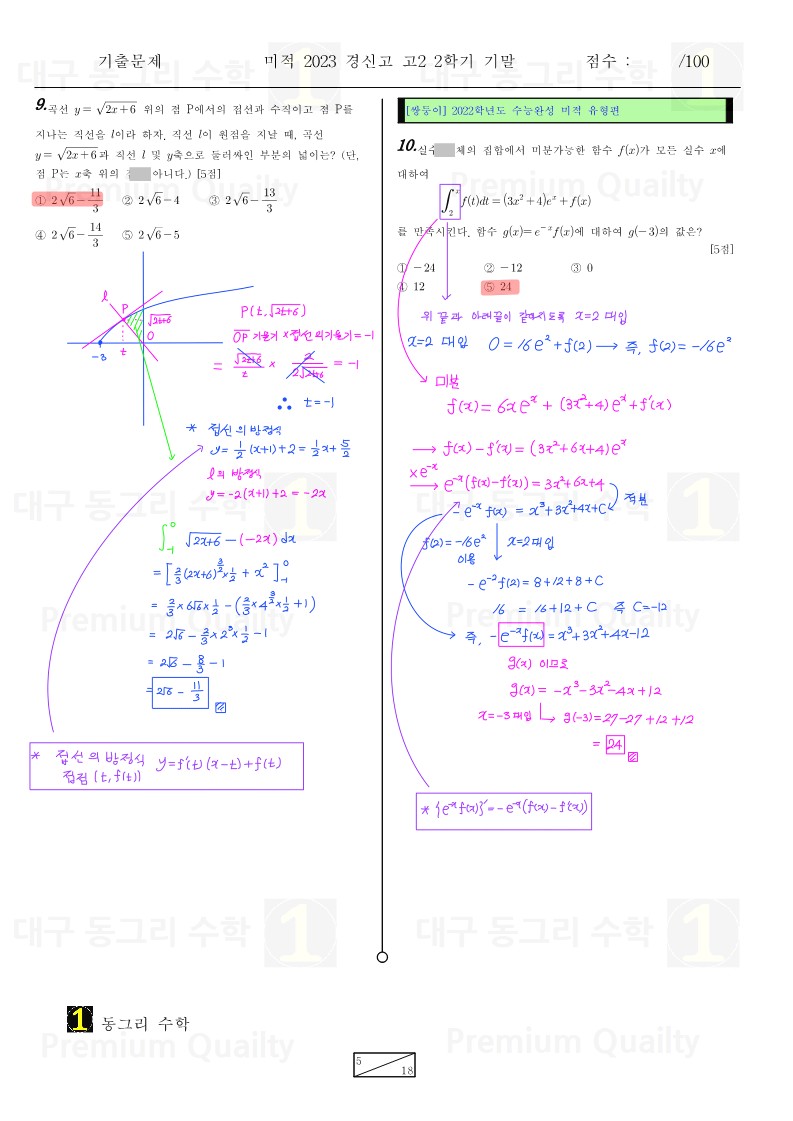 기출문제 미적 2023 경신고 고2 2학기 기말 점수 : /100
대구 동그리 수학 1
대구 동그리 수학 1
9. 곡선 y = √(2x+6) 위의 점 P에서의 접선과 수직이고 점 P를
지나는 직선을 l이라 하자. 직선 l이 원점을 지날 때, 곡선
y = √(2x+6)과 직선 l 및 y축으로 둘러싸인 부분의 넓이는? (단,
점 P는 x축 위의 아니다.) [5점]
Premium Quailty
① 2√6 - 11/3 ② 2√6 - 4 ③ 2√6 - 13/3
④ 2√6 - 14/3 ⑤ 2√6 - 5
l
P
√(2t+6)
0
-3 t
P(t, √(2t+6))
OP 기울기 × 접선의기울기 = -1
= √(2t+6)/t × 2/(2√(2t+6)) = -1
∴ t = -1
* 접선의 방정식
y = 1/2 (x+1) + 2 = 1/2 x + 5/2
l의 방정식
y = -2(x+1) + 2 = -2x
대구 동그리 수학 1
∫_-1^0 √(2x+6) - (-2x) dx
= [2/3 (2x+6)^(3/2) × 1/2 + x²]_-1^0
= 2/3 × 6√6 × 1/2 - (2/3 × 4^(3/2) × 1/2 + 1)
Premium Quailty
= 2√6 - 2/3 × 2³ × 1/2 - 1
= 2√6 - 8/3 - 1
= 2√6 - 11/3
* 접선의 방정식 y = f'(t)(x-t) + f(t)
접점 (t, f(t))
[쌍둥이] 2022학년도 수능완성 미적 유형편
10. 실수 체의 집합에서 미분가능한 함수 f(x)가 모든 실수 x에
대하여
Premium Quailty
∫_2^x f(t)dt = (3x²+4)e^x + f(x)
를 만족시킨다. 함수 g(x) = e^-x f(x)에 대하여 g(-3)의 값은?
[5점]
① -24 ② -12 ③ 0
④ 12 ⑤ 24
위 끝과 아래끝이 같아지도록 x=2 대입
x=2 대입 0 = 16e² + f(2) → 즉, f(2) = -16e²
미분
f(x) = 6xe^x + (3x²+4)e^x + f'(x)
→ f(x) - f'(x) = (3x²+6x+4)e^x
×e^-x
→ e^-x (f(x) - f'(x)) = 3x²+6x+4
적분
- e^-x f(x) = x³+3x²+4x+C
대구 동그리 수학 1
f(2) = -16e² x=2 대입
이용
- e^-2 f(2) = 8+12+8+C
16 = 16+12+C 즉 C=-12
Premium Quailty
즉, - e^-x f(x) = x³+3x²+4x-12
g(x) 이므로
g(x) = -x³-3x²-4x+12
x=-3 대입 → g(-3) = 27-27+12+12
= 24
* {e^-x f(x)}' = -e^-x (f(x) - f'(x))
대구 동그리 수학 1
대구 동그리 수학 1
1 동그리 수학
Premium Quailty
Premium Quailty
5
18